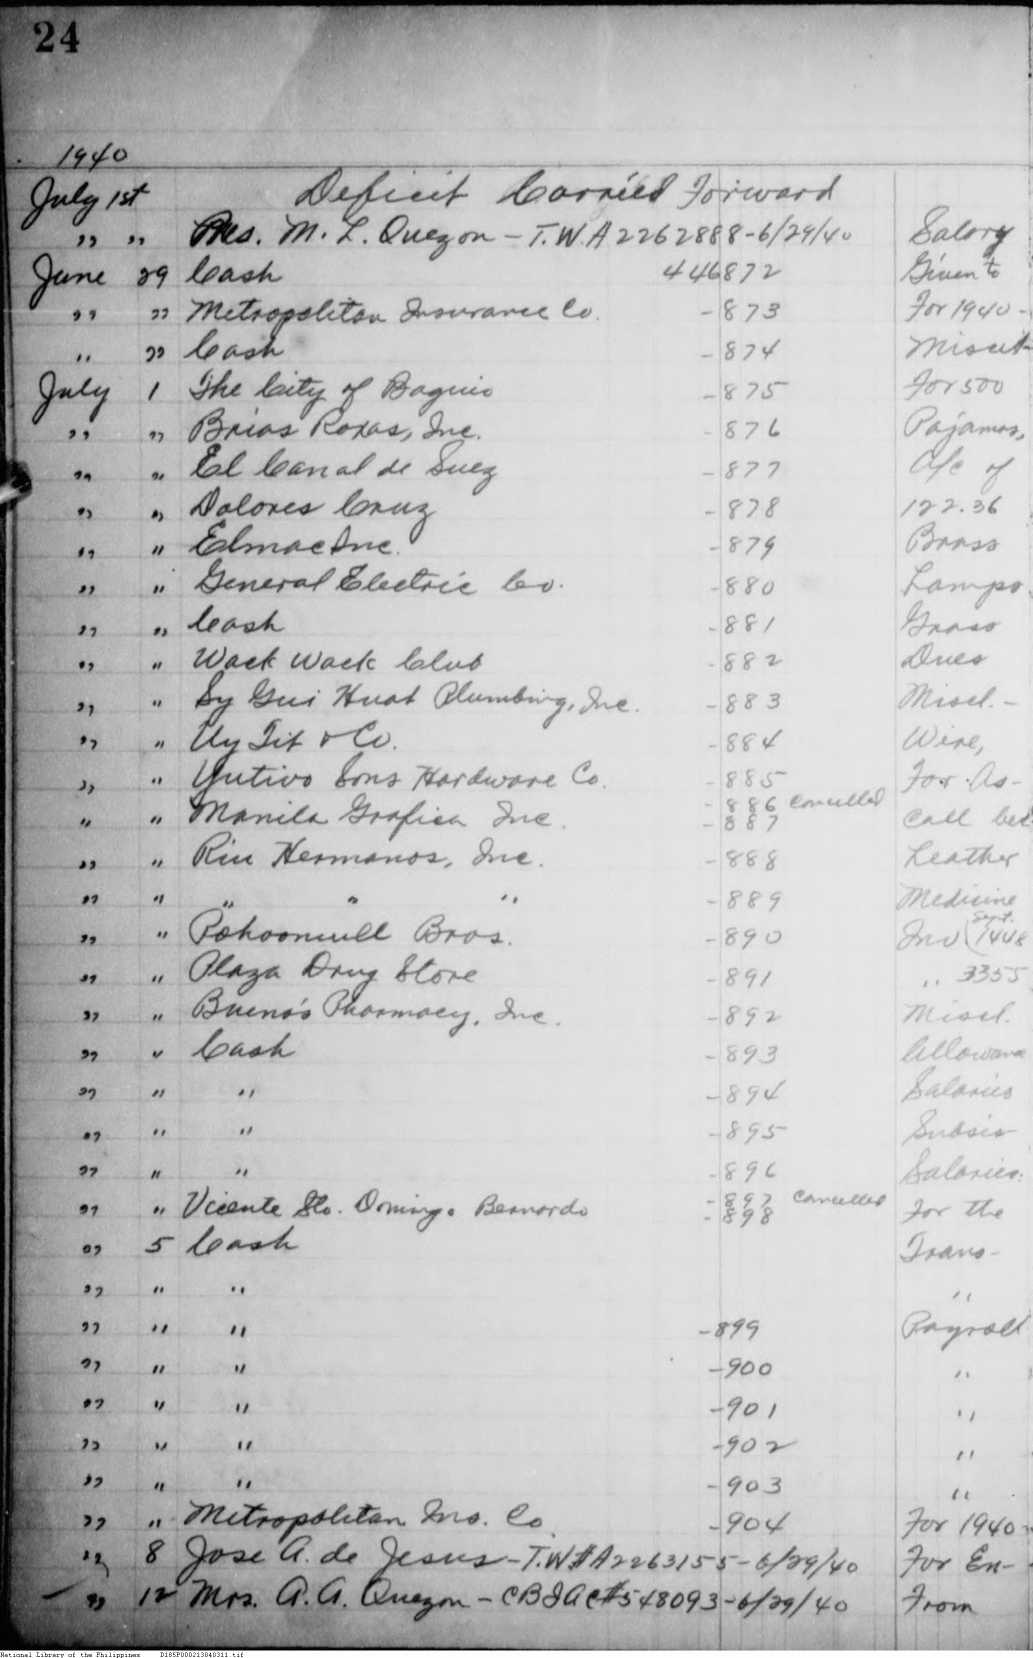 24
1940
July 1st Deficit Carried Forward
" " Pres. M. L. Quezon - T.W.A 2262888-6/29/40 Salary
June 29 Cash 446872 Given to
" " Metropolitan Insurance Co. -873 For 1940-
" " Cash -874
July 1 The City of Baguio -875 For 500
" " Brias Roxas, Inc. -876 Pajamas,
" " El Canal de Suez -877 A/c of
" " Dolores Cruz -878 122.36
" " Elmac Inc. -879 Brass
" " General Electric Co. -880 Lamps
" " Cash -881 Grass
" " Wack Wack Club -882 Dues
" " Sy Gui Huat Plumbing, Inc. -883 Miscl.-
" " Uy Tit & Co. -884 Wire,
" " Yutivo Sons Hardware Co. -885 For As-
-886 Cancelled
" " Manila Grafica Inc. -887 Call
" " Riu Hermanos, Inc. -888 Leather
" " " " " -889 Medicine
Sept.
" " Pohoomull Bros. -890 Inv (1448
" " Plaza Drug Store -891 " 3355
" " Bueno's Pharmacy, Inc. -892 Miscl.
" " Cash -893 Allowance
" " " -894 Salaries
" " " -895 Subsis-
" " " -896 Salaries
-897 Cancelled
" " Vicente Sto. Domingo Bernardo -898 For the
" 5 Cash Trans-
" " " "
" " " -899 Payroll
" " " -900 "
" " " -901 "
" " " -902 "
" " " -903 "
" " Metropolitan Ins. Co. -904 For 1940-
" 8 Jose A. de Jesus - T.W#A2263155-6/29/40 For En-
" 12 Mrs. A. A. Quezon - CBIAC#548093-6/29/40 From
National Library of the Philippines D185P000213840311.tif